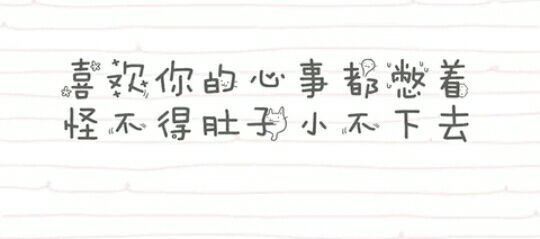 喜欢你的心事都憋着
怪不得肚子小不下去